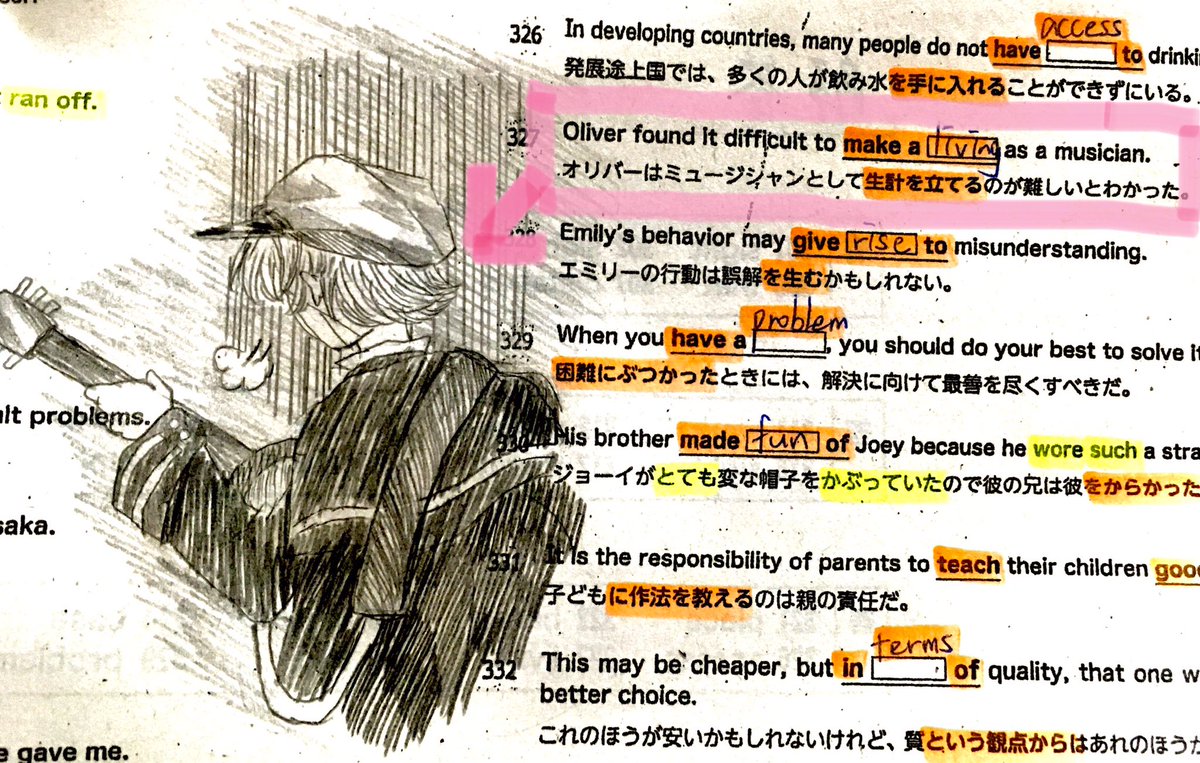 ran off.
326 In developing countries, many people do not have access to drinki
発展途上国では、多くの人が飲み水を手に入れることができずにいる。
327 Oliver found it difficult to make a living as a musician.
オリバーはミュージジャンとして生計を立てるのが難しいとわかった。
328 Emily's behavior may give rise to misunderstanding.
エミリーの行動は誤解を生むかもしれない。
329 When you have a problem, you should do your best to solve it
困難にぶつかったときには、解決に向けて最善を尽くすべきだ。
ult problems.
330 His brother made fun of Joey because he wore such a stra
ジョーイがとても変な帽子をかぶっていたので彼の兄は彼をからかった
saka.
331 It is the responsibility of parents to teach their children good
子どもに作法を教えるのは親の責任だ。
332 This may be cheaper, but in terms of quality, that one w
better choice.
これのほうが安いかもしれないけれど、質という観点からはあれのほうが
e gave me.